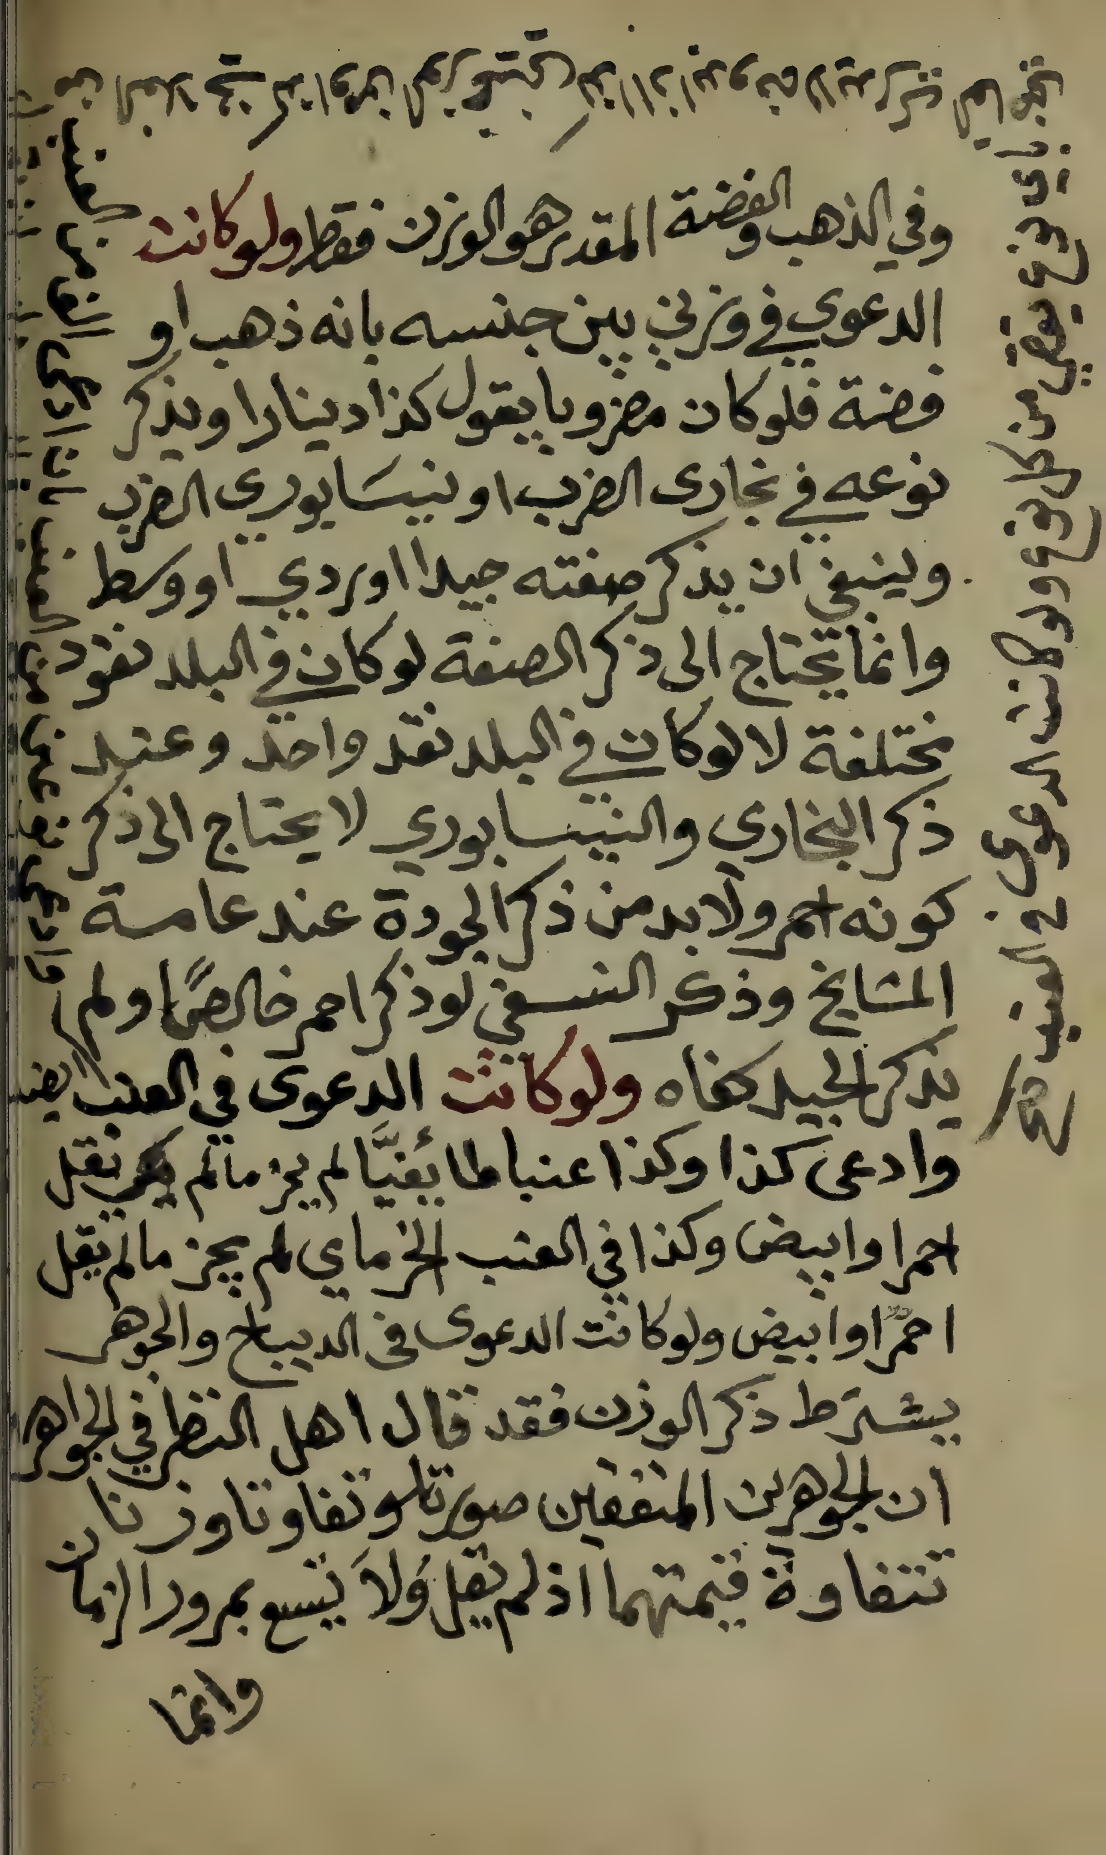 وفي الذهب والفضة المقدر هو الوزن فقط ولو كانت
الدعوي في وزني يبين جنسه بانه ذهب او
فضة فلو كان مضروبا يقول كذا دينارا ويذكر
نوعه في بخارى الضرب او نيسابوري الضرب
وينبغي ان يذكر صفته جيدا او ردي او وسط
وانما يحتاج الى ذكر الصفة لو كان في البلد نقود
مختلفة لا لو كان في البلد نقد واحد وعند
ذكر البخاري والنيسابوري لا يحتاج الى ذكر
كونه احمر ولا بد من ذكر الجودة عند عامة
المشايخ وذكر النسفي لو ذكر احمر خالصًا ولم
يذكر الجيد كفاه ولو كانت الدعوى في العنب
وادعى كذا وكذا عنبا طائفيًّا لم يجز ما لم يقل
احمر او ابيض وكذا في العنب الخرماي لم يجز ما لم يقل
احمرًا او ابيض ولو كانت الدعوى في الديباج والجوهر
يشترط ذكر الوزن فقد قال اهل النظر في الجواهر
ان الجوهرين المتفقين صورتا لو تفاوتا وزنا
تتفاوة قيمتهما اذ لم يقل ولا يتسع بمرور الزمان
وانما
من كل نوع ولو كانت الدعوى في العنب